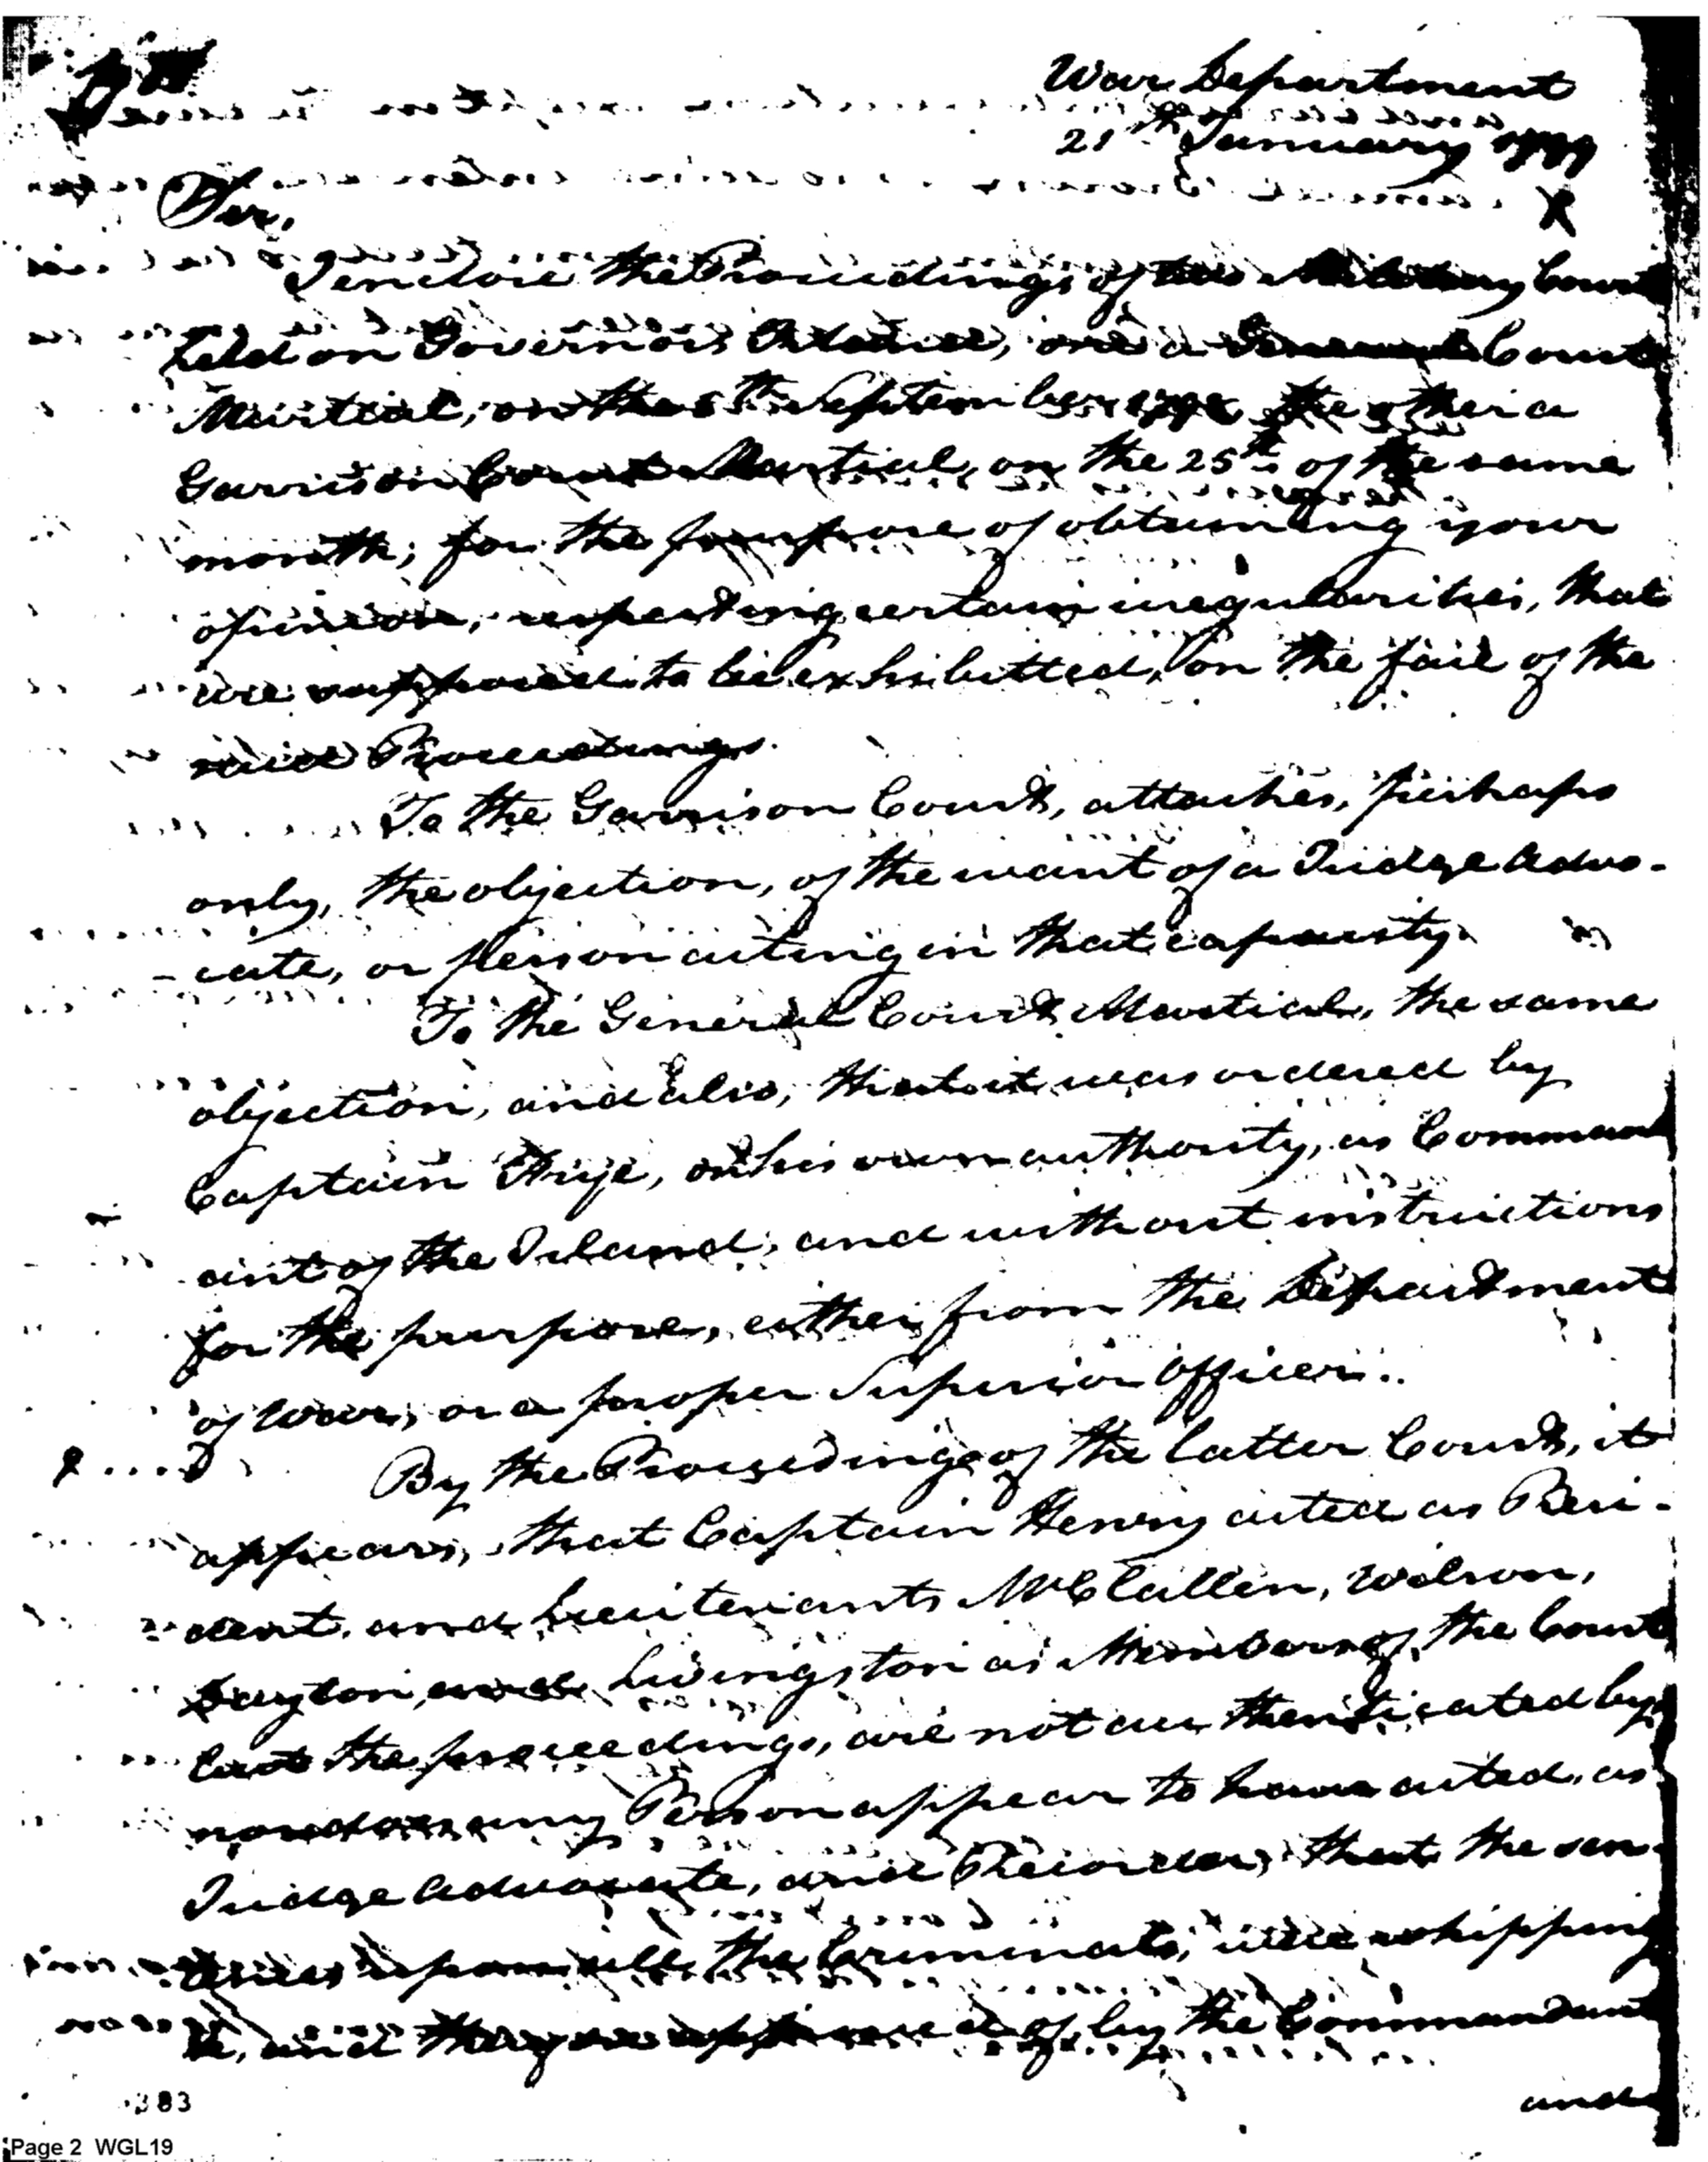 War Department
21st January 1799
Sir,
I enclose the Proceedings of two Military Courts
held on Governors Island, one a General Court
Martial, on the 5th September the other a
Garrison Court Martial, on the 25th of the same
month; for the purpose of obtaining your
opinion, respecting certain iregularities, that
are supposed to be exhibitted, on the face of the
said Proceedings.
To the Garrison Court, attaches, perhaps
only, the objection, of the want of a Judge Advo-
-cate, or Person acting in that capacity.
To the General Court Martial, the same
objection, and also, that it was ordered by
Captain Frye, on his own authority, as Command
ant of the Island, and without instructions
for the purpose, either from the Department
of War, or a proper Superior Officer.
By the Proceedings of the latter Court, it
appears, that Captain Henry acted as Presi-
dent, and Lieutenants McClallen, Wilson,
Dayton, and Livingston as Members of the Court
but the proceedings, are not authenticated by
nor does any Person appear to have acted, as
Judge Advocate, and Recorder, that the sen
tences upon all the Criminals, were whipping
&c, and they are approved of, by the Commandant
and
383
Page 2 WGL19